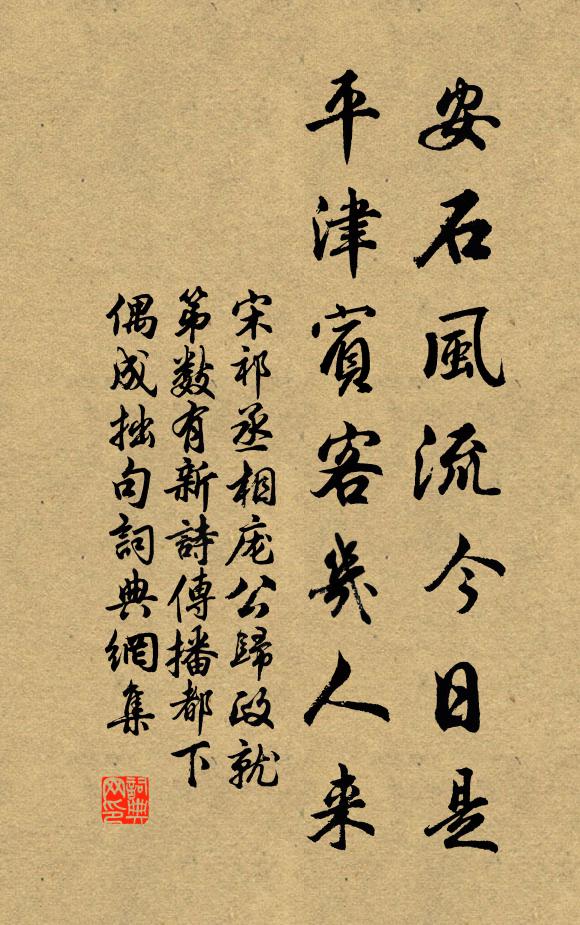 安石風流今日是
平津賓客幾人来
宋祁丞相庞公歸政就
第数有新詩傳播都下
偶成拙句詞典網集
詞典网印